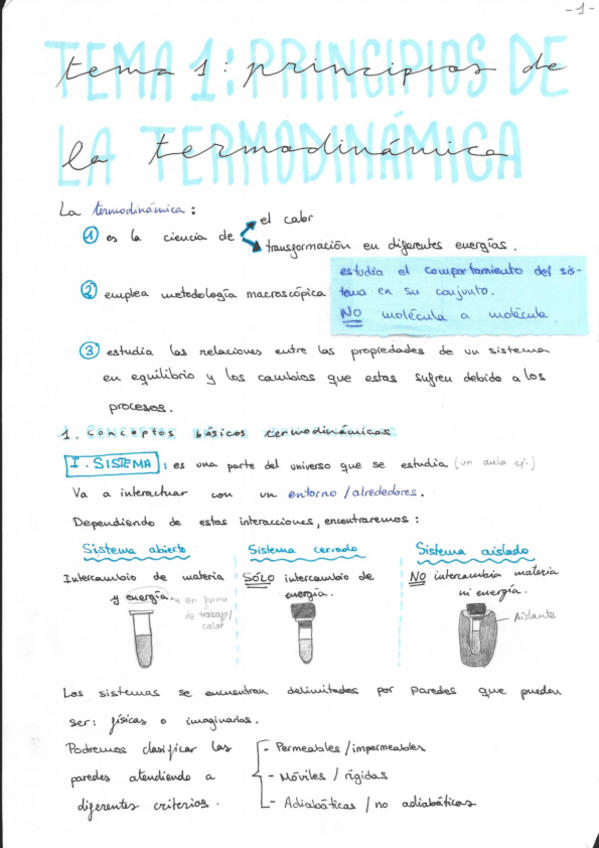 -1-
TEMA 1: PRINCIPIOS DE
tema 1: principios de
LA TERMODINÁMICA
la termodinámica
La termodinámica:
① es la ciencia de
el calor
transformación en diferentes energías.
② emplea metodología macroscópica
estudia el comportamiento del sis-
tema en su conjunto.
NO molécula a molécula
③ estudia las relaciones entre las propiedades de un sistema
en equilibrio y los cambios que estas sufren debido a los
procesos.
1. conceptos básicos termodinámicas
I. SISTEMA: es una parte del universo que se estudia (un aula ej.)
Va a interactuar con un entorno/alrededores.
Dependiendo de estas interacciones, encontraremos:
Sistema abierto
Intercambio de materia
y energía
en forma
de trabajo/
calor
Sistema cerrado
SÓLO intercambio de
energía.
Sistema aislado
NO intercambia materia
ni energía.
Aislante
Los sistemas se encuentran delimitados por paredes que pueden
ser: físicas o imaginarias.
Podremos clasificar las
paredes atendiendo a
diferentes criterios.
- Permeables/impermeables
- Móviles/rígidas
- Adiabáticas/no adiabáticas